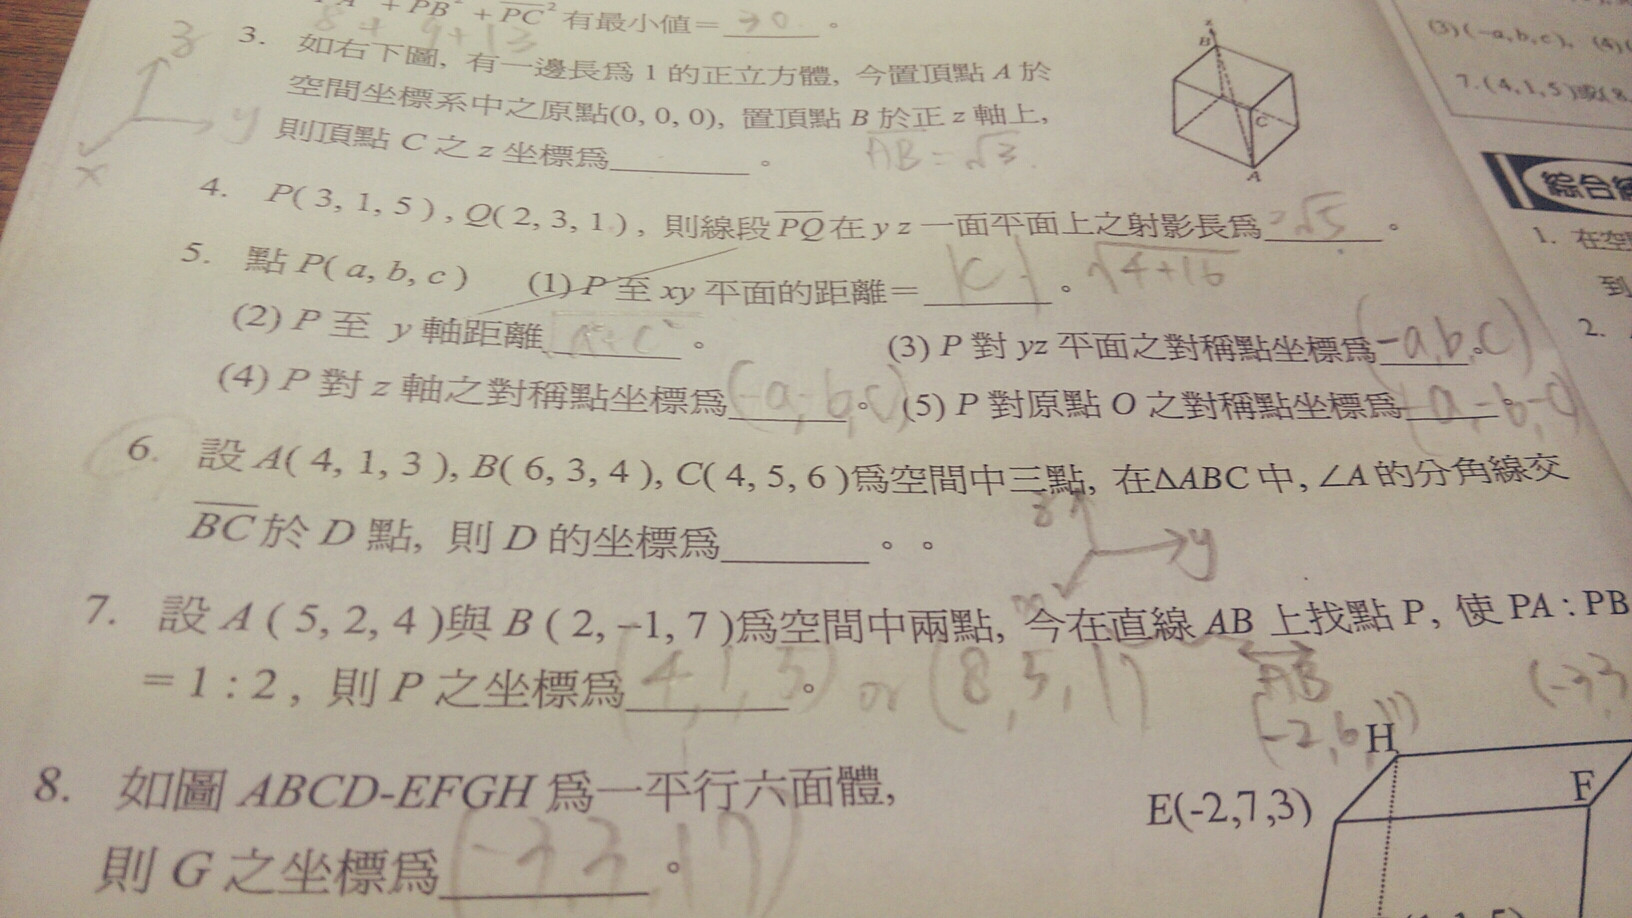 + PB² + PC² 有最小值= 30 。
8 + 9+13
3. 如右下圖, 有一邊長爲 1 的正立方體, 今置頂點 A 於
空間坐標系中之原點(0, 0, 0), 置頂點 B 於正 z 軸上,
則頂點 C 之 z 坐標爲 。
AB = √3
z
y
x
z
B
C
A
4. P( 3, 1, 5 ) , Q( 2, 3, 1 ) , 則線段 PQ 在 y z 一面平面上之射影長爲 2√5 。
√4+16
5. 點 P( a, b, c ) (1) P 至 xy 平面的距離= |c| 。
(2) P 至 y 軸距離 √a²+c² 。 (3) P 對 yz 平面之對稱點坐標爲 (-a, b, c) 。
(4) P 對 z 軸之對稱點坐標爲 (-a, -b, c) 。 (5) P 對原點 O 之對稱點坐標爲 (-a, -b, -c) 。
6. 設 A( 4, 1, 3 ), B( 6, 3, 4 ), C( 4, 5, 6 )爲空間中三點, 在ΔABC 中, ∠A 的分角線交
BC 於 D 點, 則 D 的坐標爲 。 。
z
y
7. 設 A ( 5, 2, 4 )與 B ( 2, −1, 7 )爲空間中兩點, 今在直線 AB 上找點 P, 使 PA : PB
= 1 : 2 , 則 P 之坐標爲 (4, 1, 5) 。 or (8, 5, 1)
AB
8. 如圖 ABCD-EFGH 爲一平行六面體,
則 G 之坐標爲 (-3, 3, 17) 。
(-2, 6, 11)
(-3 3,
H
E(-2,7,3)
F
(3) (-a, b, c), (4) (
7. (4, 1, 5)或(8,
綜合
1. 在空
到
2.